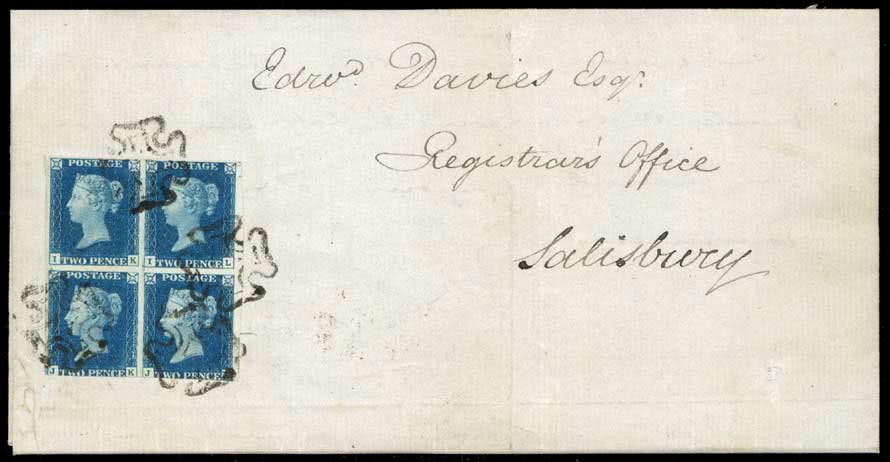 Edrwd. Davies Esqr.
Registrar's Office
Salisbury
POSTAGE POSTAGE
I K I L
TWO PENCE TWO PENCE
POSTAGE POSTAGE
J K J
TWO PENCE TWO PENCE